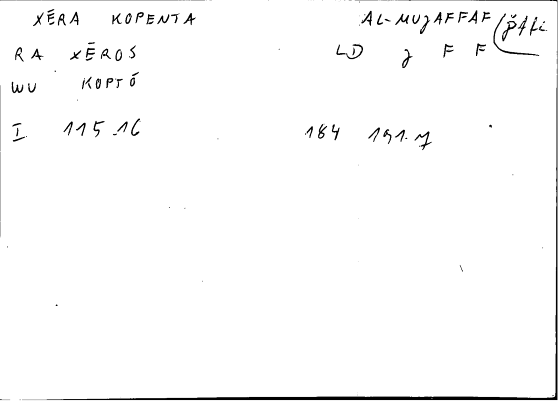 XĒRA KOPENTA AL-MUJAFFAF
RA XĒROS LD J F F
WU KOPTÓ
I 115.16 184 191.7